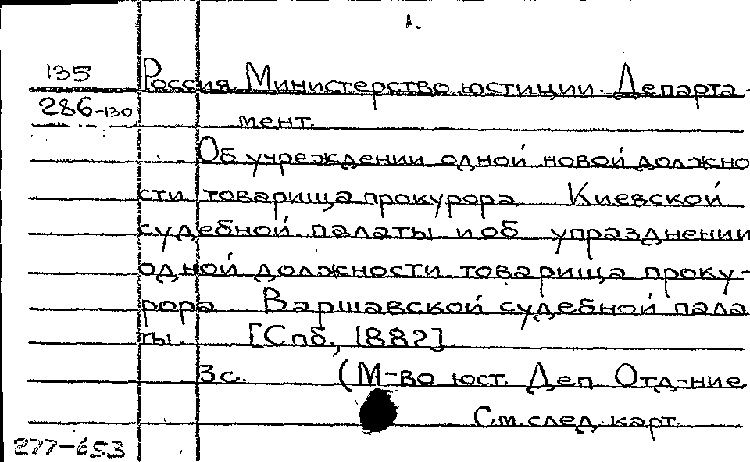 1.
135 Россия. Министерство юстиции. Департа-
286-130 мент.
Об учреждении одной новой должно
сти товарища прокурора Киевской
судебной палаты и об упразднении
одной должности товарища проку-
рора Варшавской судебной пала
ты. [Спб., 1882]
3с. (М-во юст. Деп. Отд-ние
См. след. карт.
277-653